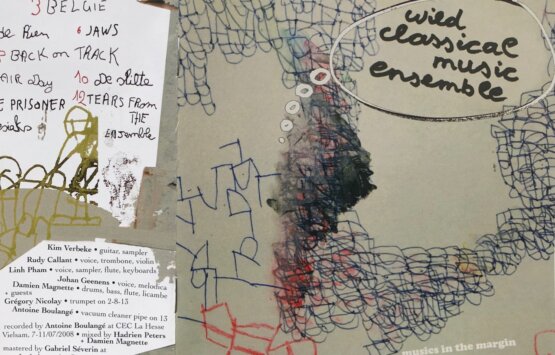 3 BELGIE
6 JAWS
BACK on TRACK
AIR Day 10 De stilte
PRISONER 12 TEARS FROM
THE
ENSEMBLE
wild
classical
music
ensemble
Kim Verbeke • guitar, sampler
Rudy Callant • voice, trombone, violin
Linh Pham • voice, sampler, flute, keyboards
Johan Geenens • voice, melodica
Damien Magnette • drums, bass, flute, licambe
+ guests
Grégory Nicolay • trumpet on 2-8-13
Antoine Boulangé • vacuum cleaner pipe on 13
recorded by Antoine Boulangé at CEC La Hesse
Vielsam, 7-11/07/2008 • mixed by Hadrien Peters
+ Damien Magnette
mastered by Gabriel Séverin at
musics in the margin